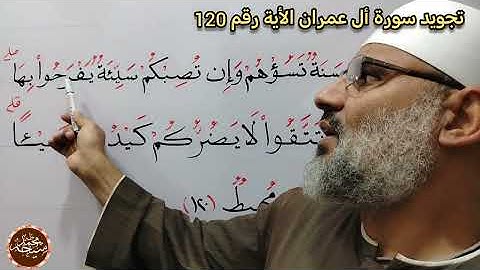 تجويد سورة أل عمران الأية رقم 120
حَسَنَةٌ تَسُؤْهُمْ وَإِن تُصِبْكُمْ سَيِّئَةٌ يَفْرَحُوا۟ بِهَا ۖ
تَتَّقُوا۟ لَا يَضُرُّكُمْ كَيْدُ
مُحِيطٌ (١٢٠)